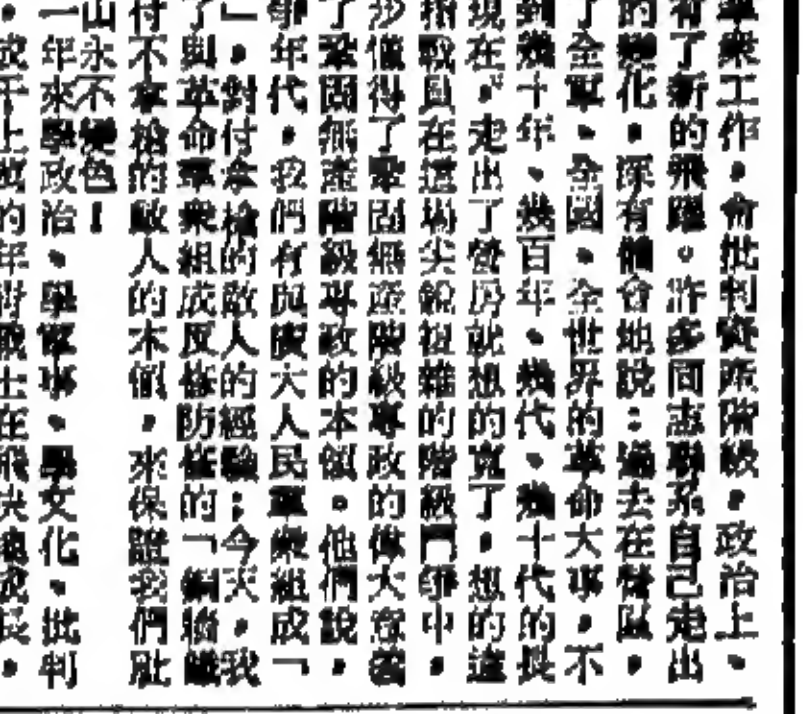 羣衆工作，會批判資產階級，政治上、
有了新的飛躍。許多同志聯系自己走出
的變化，深有體會地說：過去在營區，
了全軍、全國、全世界的革命大事，不
到幾十年、幾百年、幾代、幾十代的長
現在，走出了營房就想的寬了，想的遠
指戰員在這場尖銳複雜的階級鬥爭中，
懂得了鞏固無產階級專政的偉大意義
了鞏固無產階級專政的本領。他們說，
年代，我們有與廣大人民羣衆組成「
」，對付拿槍的敵人的經驗；今天，我
了與革命羣衆組成反修防修的「銅牆鐵
付不拿槍的敵人的本領，來保證我們社
山永不變色！
一年來學政治、學軍事、學文化、批判
在